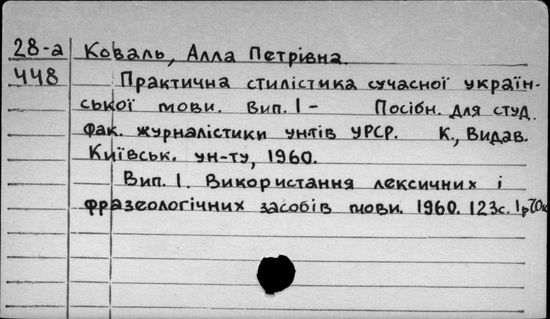 28-а Коваль, Алла Петрівна.
448 Практична стилістика сучасної україн-
ської мови. Вип. 1 - Посібн. для студ.
фак. журналістики ун-тів УРСР. К., Видав.
Київськ. ун-ту, 1960.
Вип. 1. Використання лексичних і
фразеологічних засобів мови. 1960. 123с. 1р70к